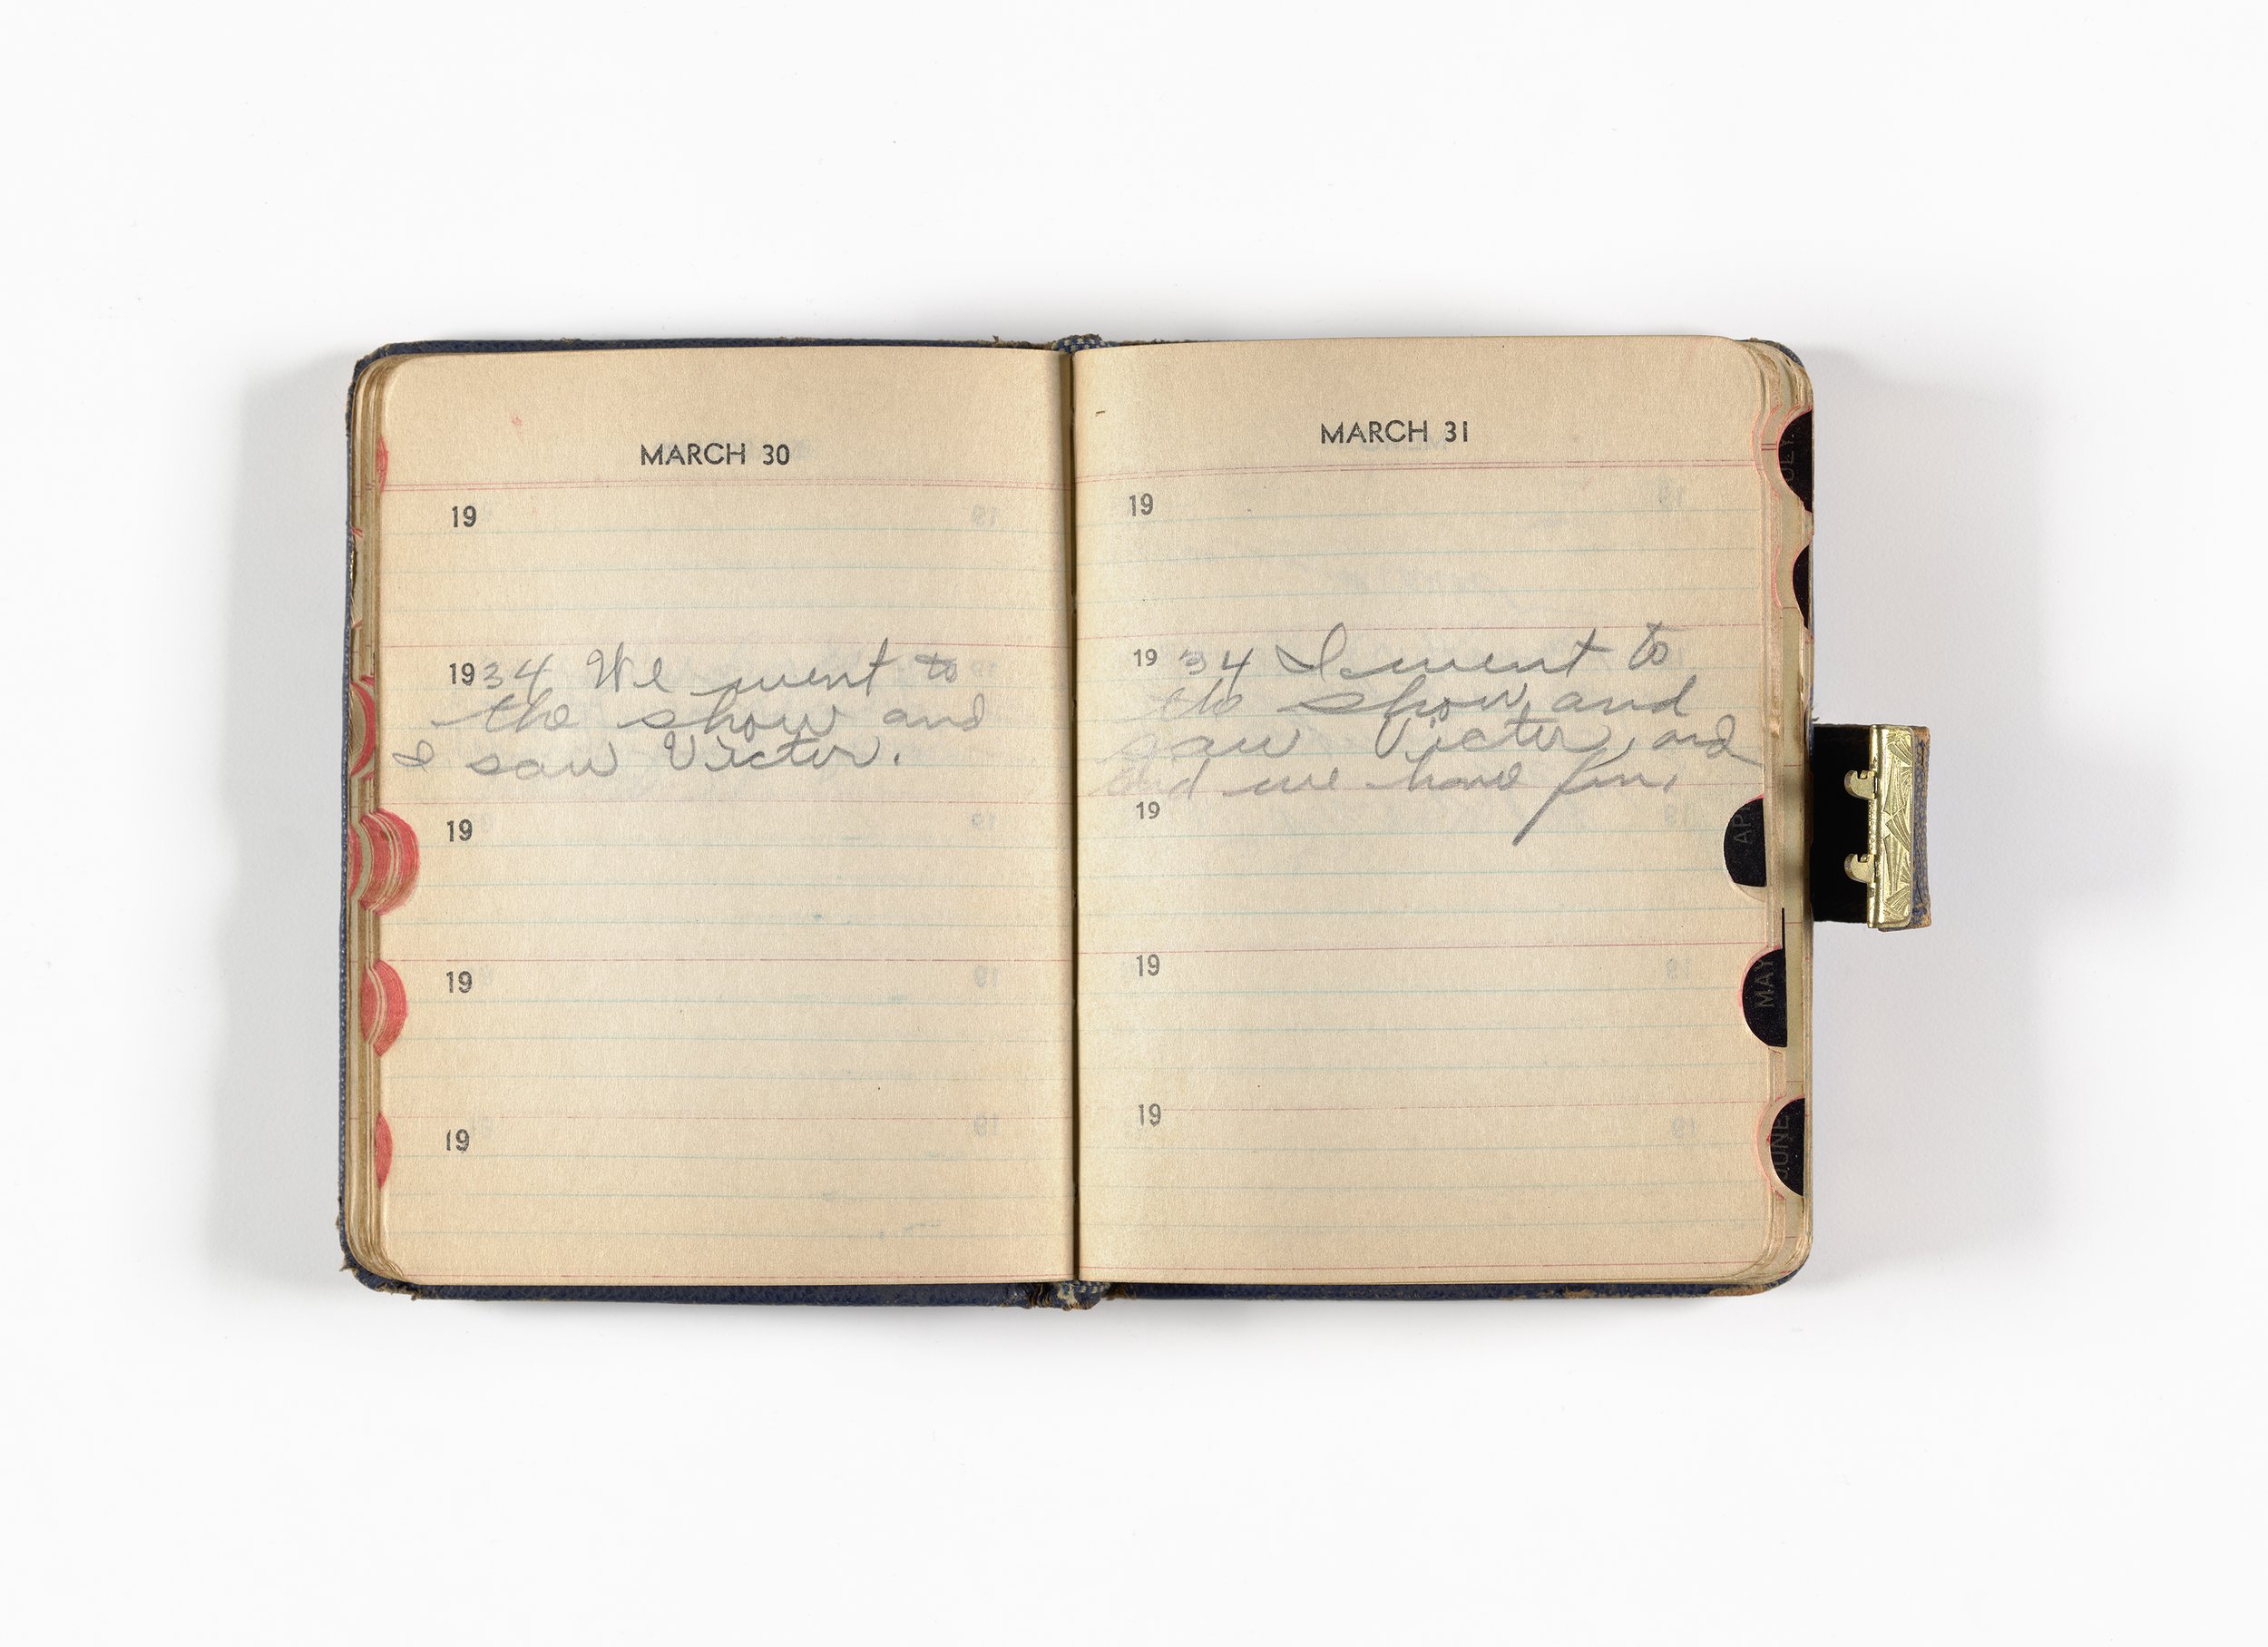 MARCH 30
19
1934 We went to
the show and
I saw Victor.
19
19
19
MARCH 31
19
1934 I went to
the show and
saw Victor, and
and we have fun.
19
19
19
APR
MAY
JUNE